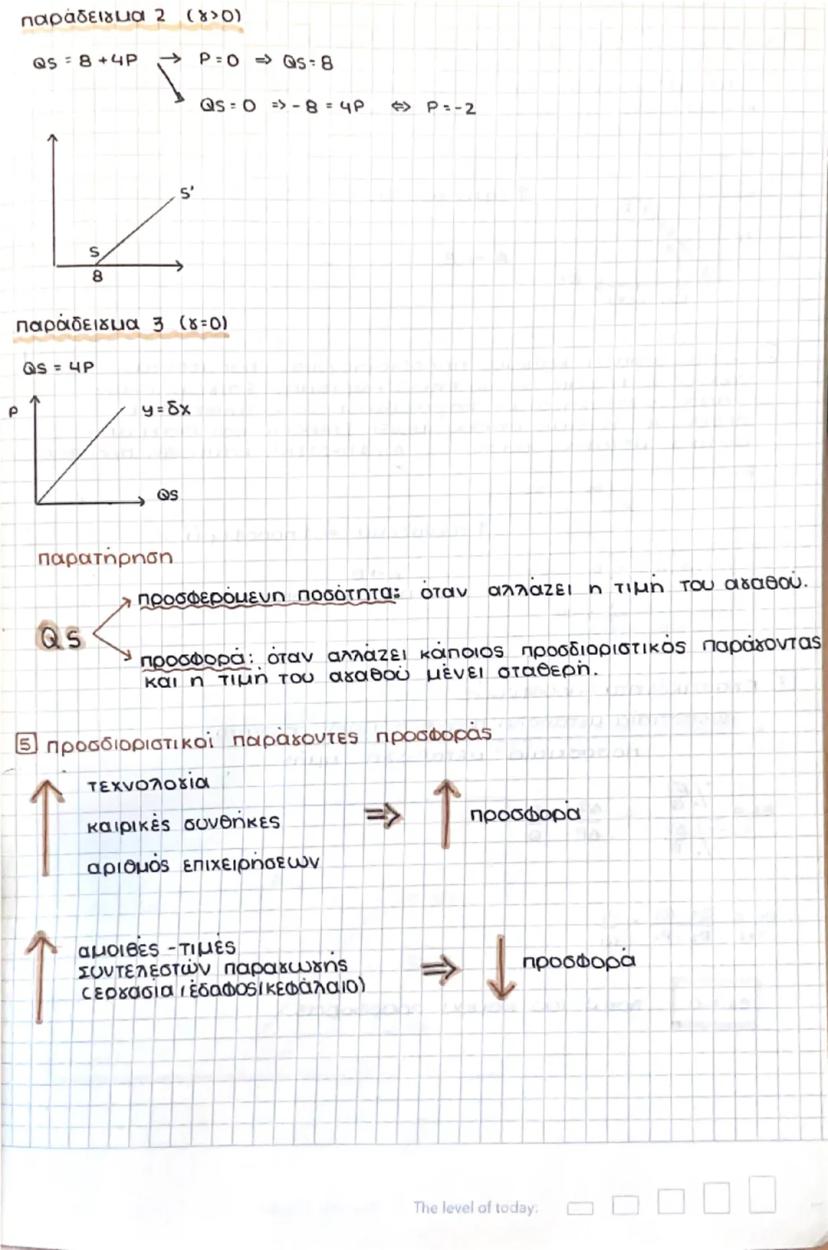 παράδειγμα 2 (γ>0)
QS = 8 + 4P → P = 0 ⇒ QS = 8
QS = 0 ⇒ -8 = 4P ⇔ P = -2
S'
S
8
παράδειγμα 3 (γ=0)
QS = 4P
P
y = δx
QS
παρατήρηση
προσφερόμενη ποσότητα: όταν αλλάζει η τιμή του αγαθού.
QS
προσφορά: όταν αλλάζει κάποιος προσδιοριστικός παράγοντας
και η τιμή του αγαθού μένει σταθερή.
5 προσδιοριστικοί παράγοντες προσφοράς
↑ τεχνολογία
καιρικές συνθήκες ⇒ ↑ προσφορά
αριθμός επιχειρήσεων
↑ αμοιβές - τιμές
συντελεστών παραγωγής ⇒ ↓ προσφορά
(εργασία, έδαφος, κεφάλαιο)
The level of today: